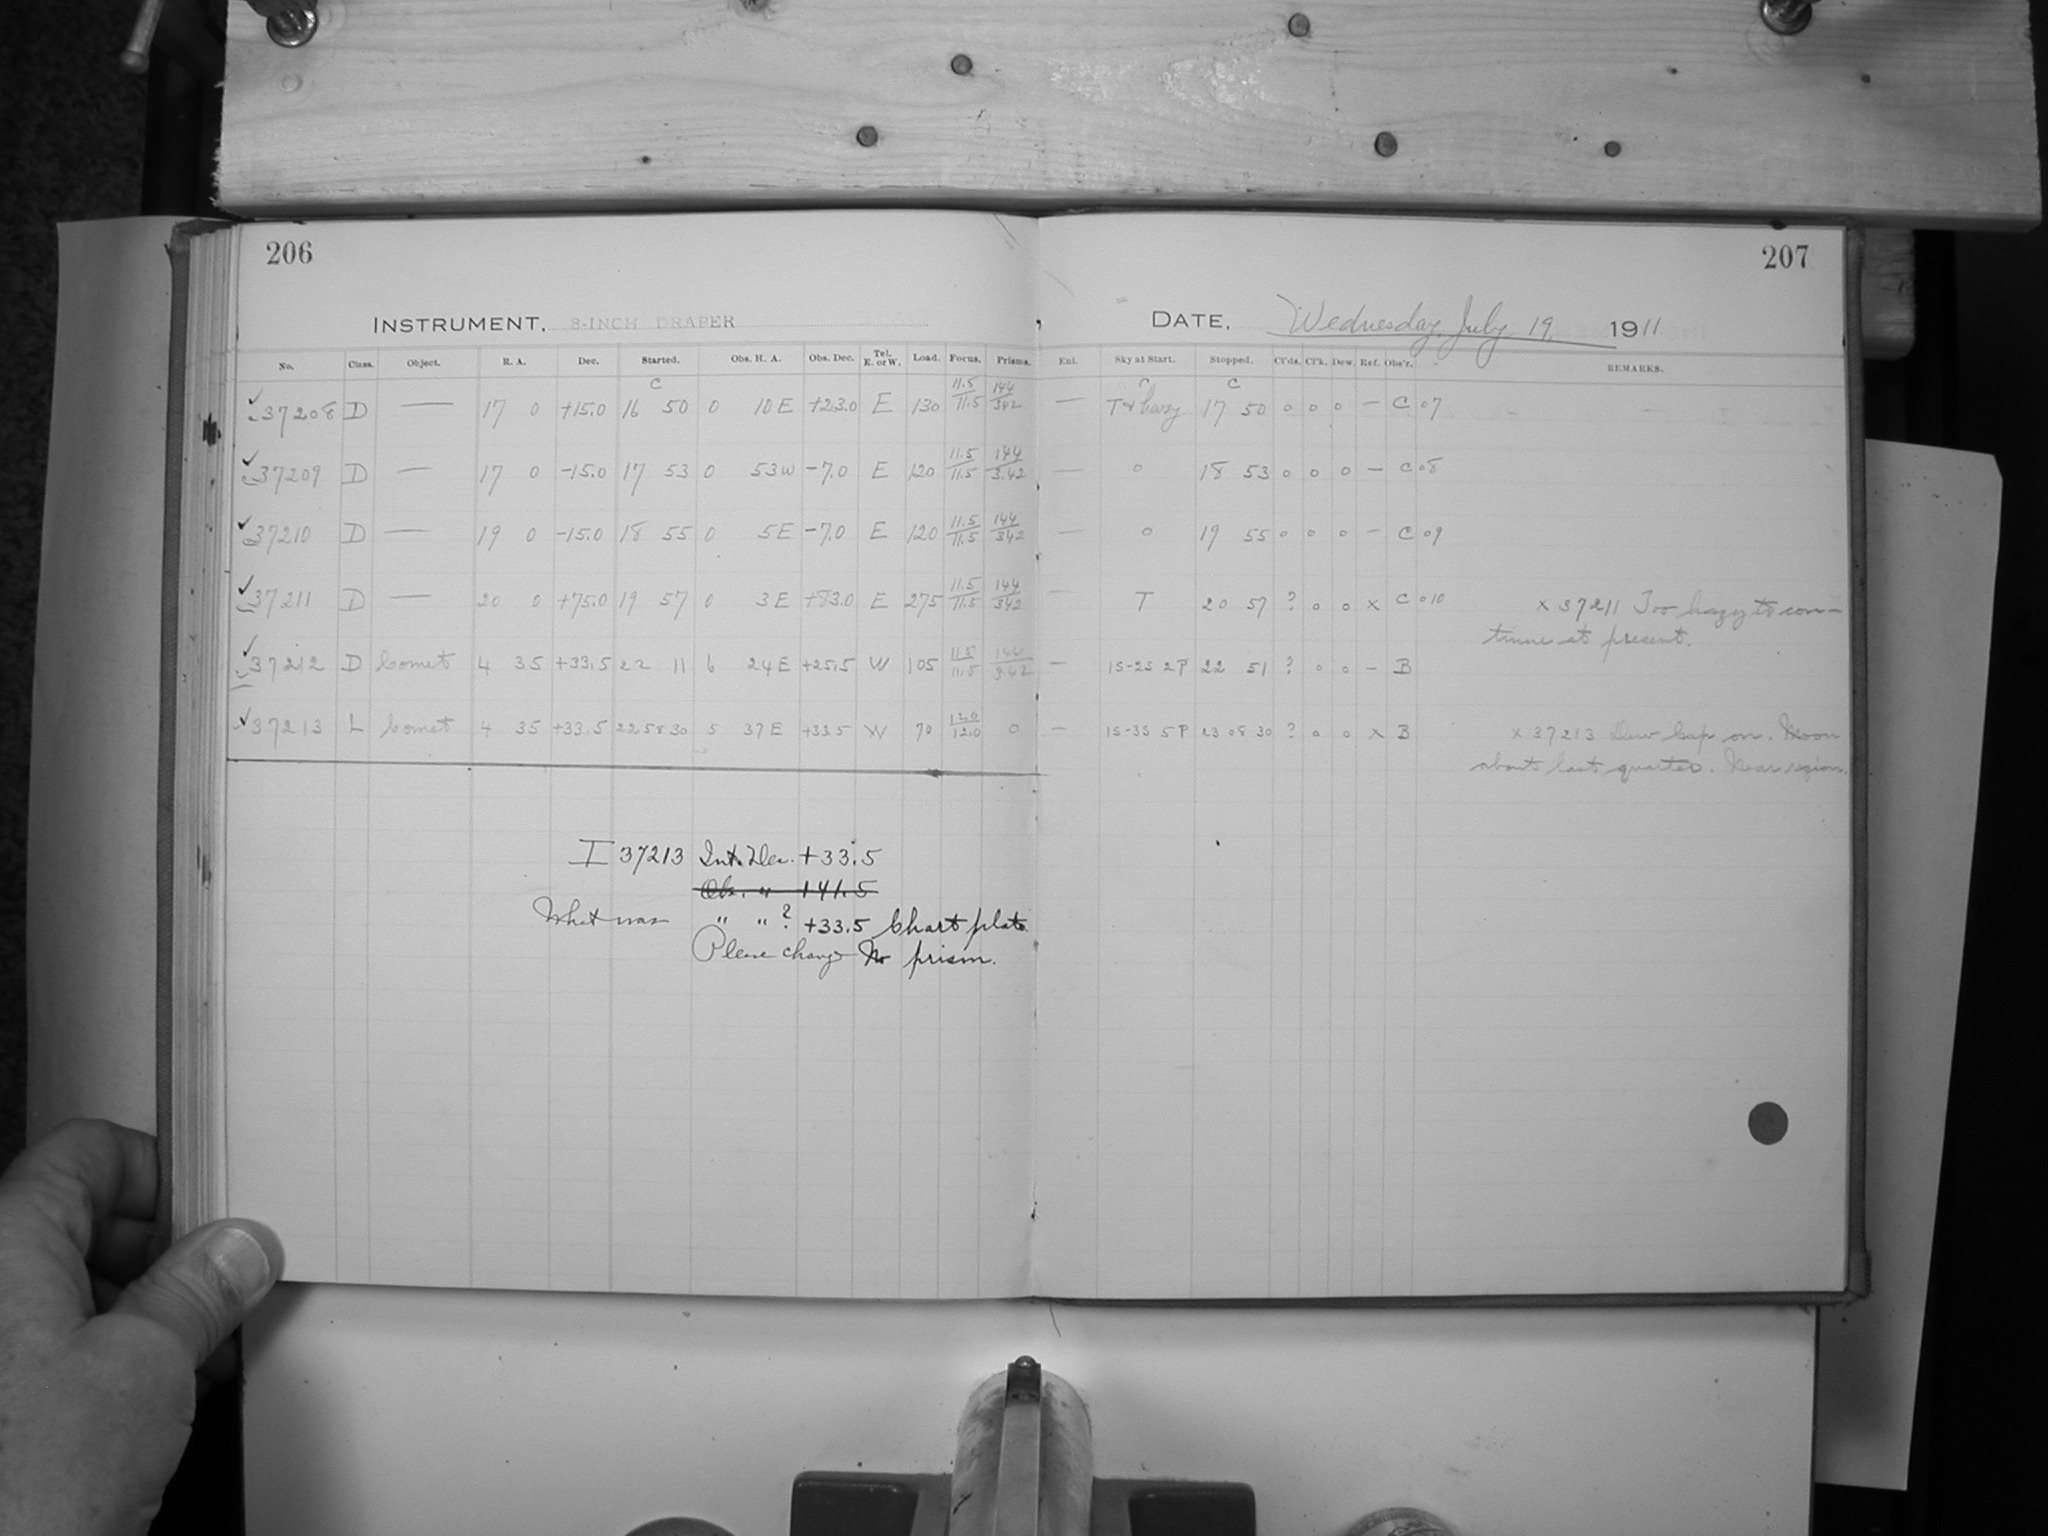 206
207
INSTRUMENT, 8-INCH DRAPER
DATE, Wednesday, July 19, 1911
No. Class. Object. R. A. Dec. Started. Obs. H. A. Obs. Dec. Tel. E. or W. Load. Focus. Prisms. Enl. Sky at Start. Stopped. Cl'ds. Cl'k. Dew. Ref. Obs'r. REMARKS.
C C C
✓ 37208 D — 17 0 +15.0 16 50 0 10 E +23.0 E 130 11.5/11.5 144/342 — T & hazy 17 50 0 0 0 — C 07
✓ 37209 D — 17 0 -15.0 17 53 0 53 W -7.0 E 120 11.5/11.5 144/3.42 — 0 18 53 0 0 0 — C 08
✓ 37210 D — 19 0 -15.0 18 55 0 5 E -7.0 E 120 11.5/11.5 144/342 — 0 19 55 0 0 0 — C 09
✓ 37211 D — 20 0 +75.0 19 57 0 3 E +83.0 E 275 11.5/11.5 144/342 — T 20 57 ? 0 0 x C 010 x 37211 Too hazy to con-
tinue at present.
✓ 37212 D Comet 4 35 +33.5 22 11 6 24 E +25.5 W 105 11.5/11.5 144/3.42 — 1S-2S 2P 22 51 ? 0 0 — B
✓ 37213 L Comet 4 35 +33.5 22 58 30 5 37 E +33.5 W 70 12.0/12.0 0 — 1S-3S 5P 23 08 30 ? 0 0 x B x 37213 Dew Cap on. Moon
about last quarter. Near region.
I 37213 Int. Dec. +33.5
Obs. " +41.5
What was " " ? +33.5 Chart plate
Please change No prism.